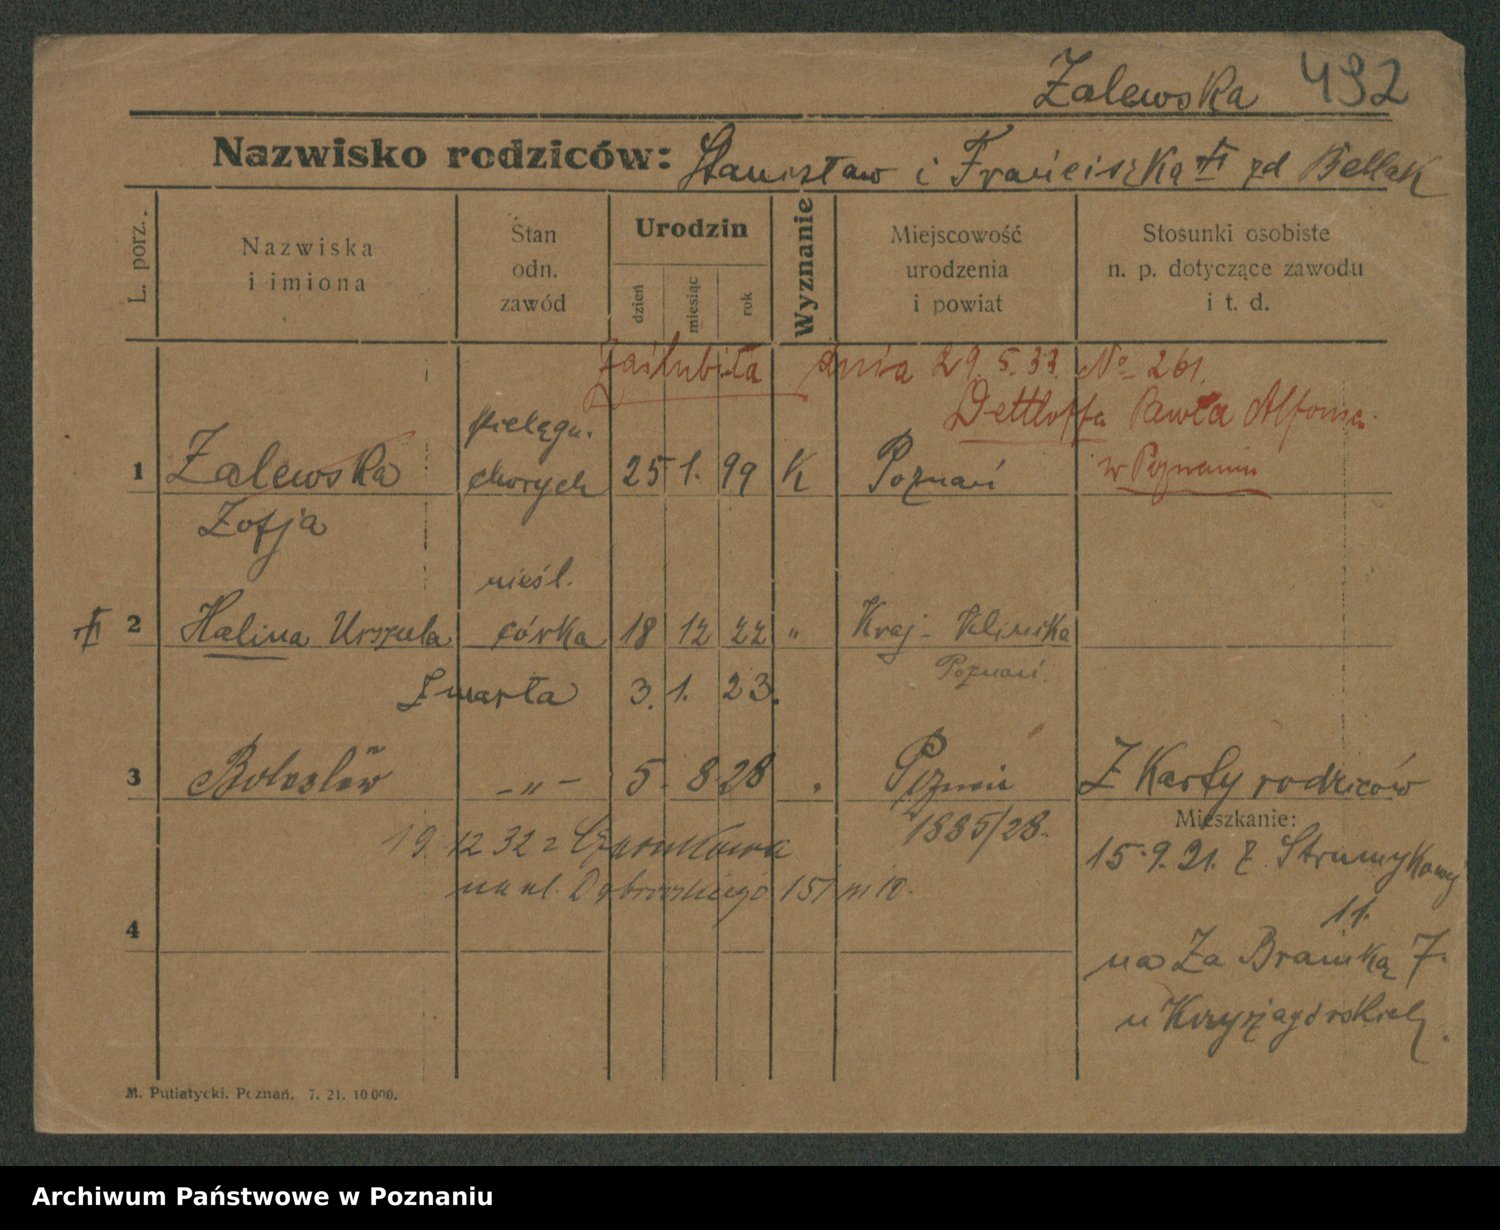 Zalewska 492
Nazwisko rodziców: Stanisław i Franciszka zd Bellak
L. porz.
Nazwiska
i imiona
Stan
odn.
zawód
Urodzin
dzień
miesiąc
rok
Wyznanie
Miejscowość
urodzenia
i powiat
Stosunki osobiste
n. p. dotyczące zawodu
i t. d.
Zaślubiła dnia 29. 5. 33. No 261.
Dettloffa Pawła Alfonsa
w Poznaniu
pielęgn.
1 Zalewska chorych 25 1. 99 K Poznań
Zofja
nieśl.
2 Halina Urszula córka 18 12 22 " Kraj. Klinika
Poznań.
Zmarła 3. 1. 23.
3 Bolesław -"- 5. 8 28 Poznań Z Karty rodziców
1885/28.
Mieszkanie:
19 12 32 z Czarnkowa
na ul. Dąbrowskiego 151 m 10.
15.9.21. z Strumykowej
11.
4
na Za Bramką 7.
u Krzyżagórskich.
M. Putiatycki. Poznań. 7. 21. 10 000.
Archiwum Państwowe w Poznaniu